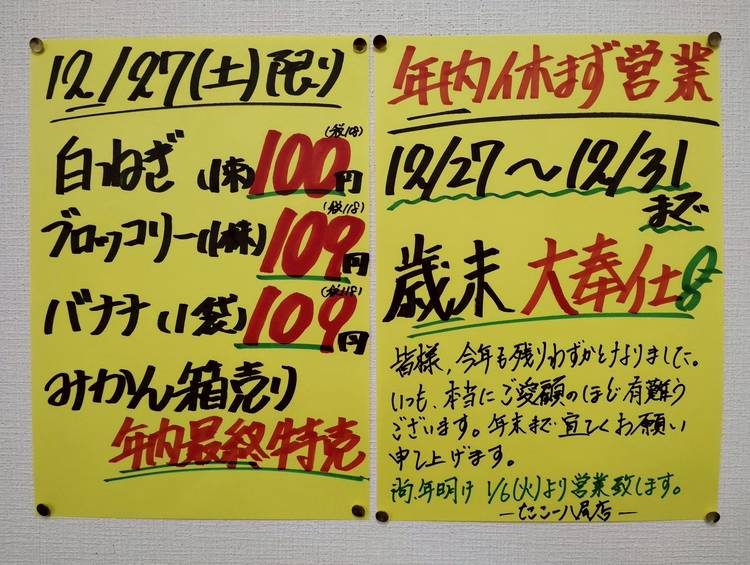 12/27(土)限り
白ねぎ(1束)100円(税108)
ブロッコリー(1株)109円(税118)
バナナ(1袋)109円(税118)
みかん箱売り
年内最終特売
年内休まず営業
12/27〜12/31
まで
歳末大奉仕
皆様、今年も残りわずかとなりました。
いつも、本当にご愛顧のほど有難う
ございます。年末まで宜しくお願い
申し上げます。
尚、年明け 1/6(火)より営業致します。
―たこ一八尾店―